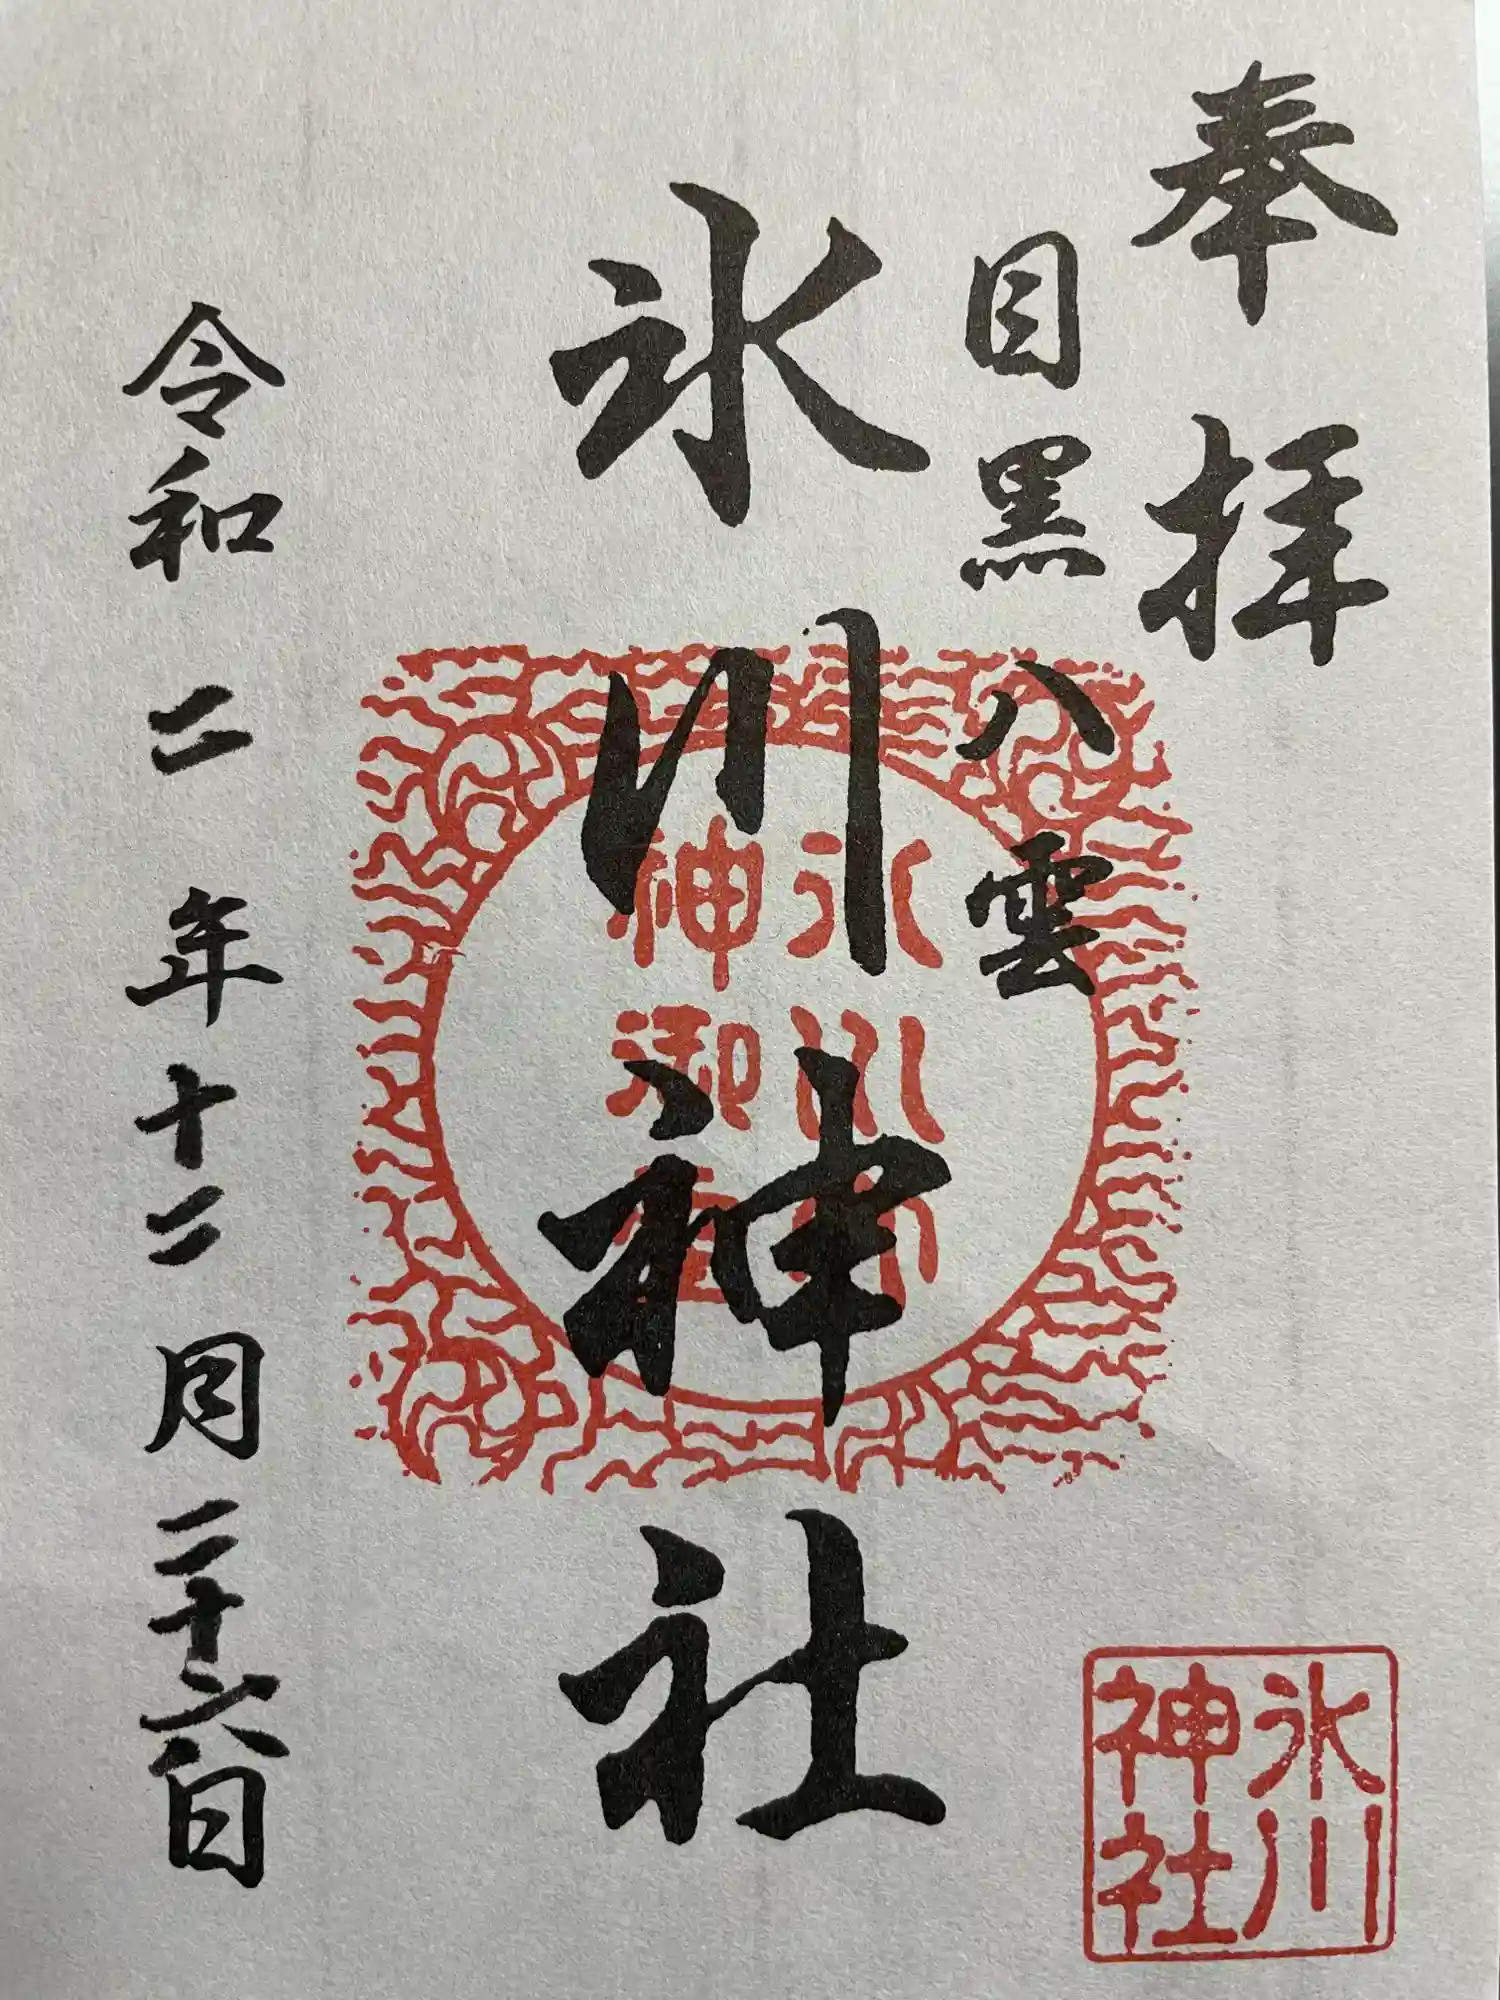 奉拝
目黒八雲
氷川神社
令和二年十二月二十六日
氷川
神社